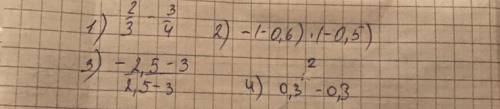 1) 2/3 - 3/4 2) -(-0,6) · (-0,5)
3) (-2,5-3)/(2,5-3) 4) 0,3² - 0,3